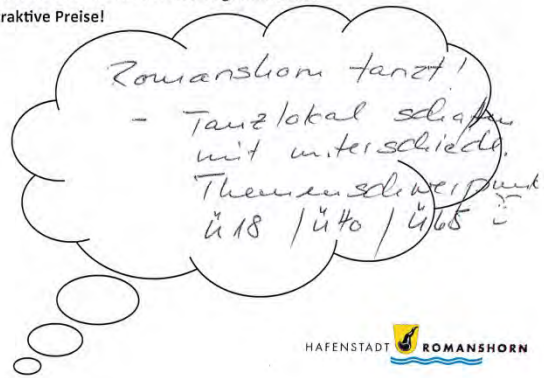 raktive Preise!
Romanshorn tanzt!
- Tanzlokal schaffen
mit unterschiedl.
Themenschwerpunkt
ü18 / ü40 / ü65
HAFENSTADT ROMANSHORN